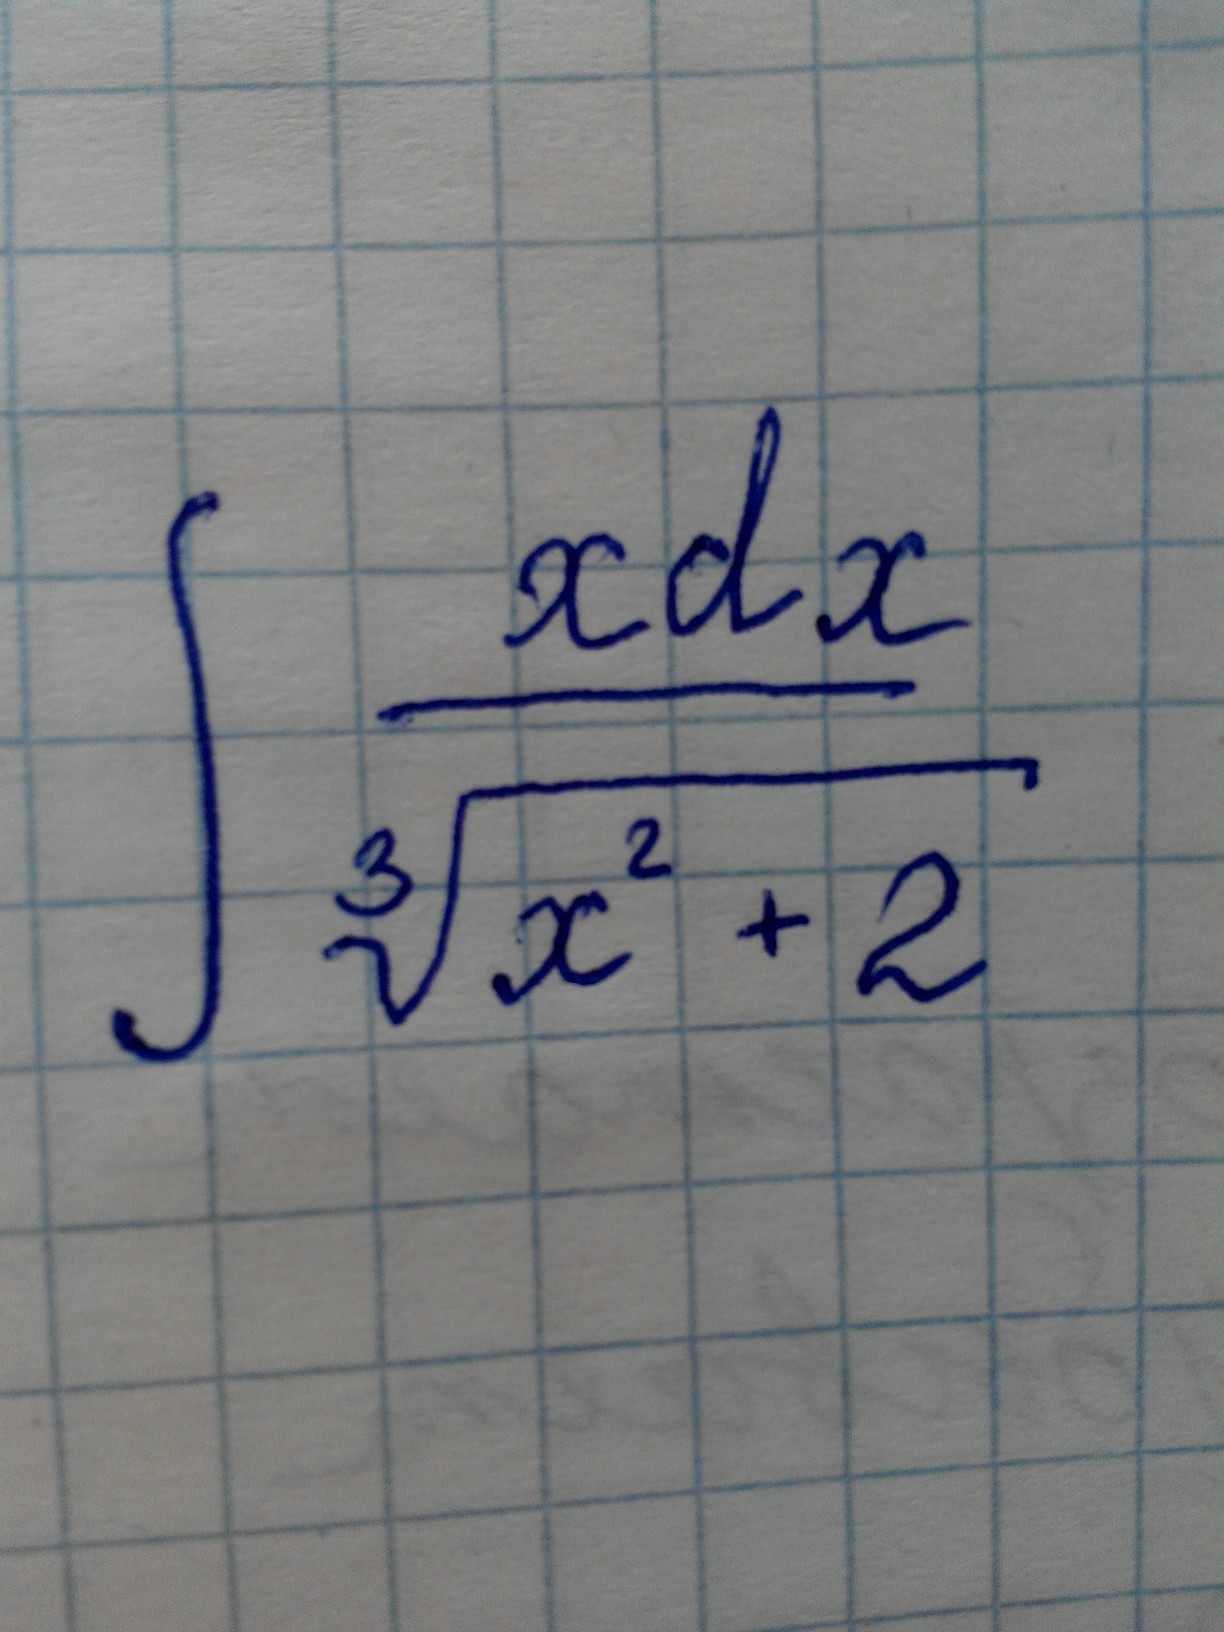 ∫ xdx / ∛(x² + 2)